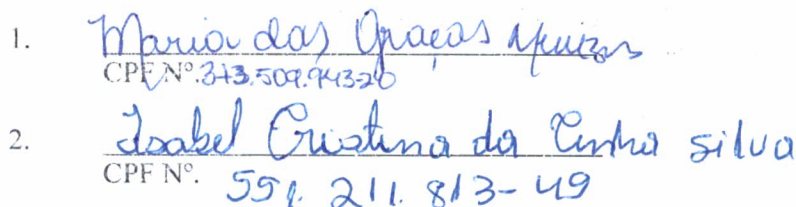 1. Maria das Graças
CPF Nº. 373.509.943-20
2. Isabel Cristina da Cunha Silva
CPF Nº. 551.211.813-49